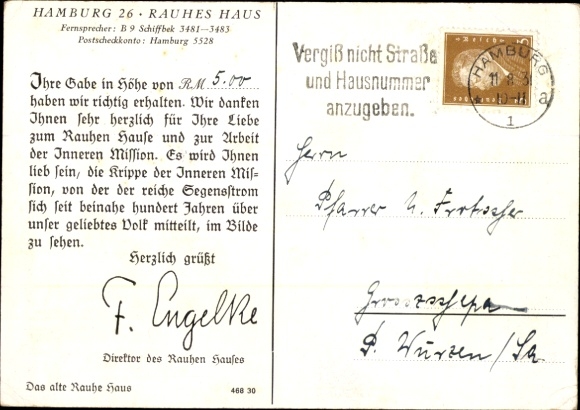 HAMBURG 26 · RAUHES HAUS
Fernsprecher: B 9 Schiffbek 3481—3483
Postscheckkonto: Hamburg 5528
Ihre Gabe in Höhe von RM 5.00
haben wir richtig erhalten. Wir danken
Ihnen sehr herzlich für Ihre Liebe
zum Rauhen Hause und zur Arbeit
der Inneren Mission. Es wird Ihnen
lieb sein, die Krippe der Inneren Mis-
sion, von der der reiche Segensstrom
sich seit beinahe hundert Jahren über
unser geliebtes Volk mitteilt, im Bilde
zu sehen.
Herzlich grüßt
F. Engelke
Direktor des Rauhen Hauses
Das alte Rauhe Haus
468 30
Vergiß nicht Straße
und Hausnummer
anzugeben.
HAMBURG
1
a
Herrn
Pfarrer
P. Wurzen/Sa.